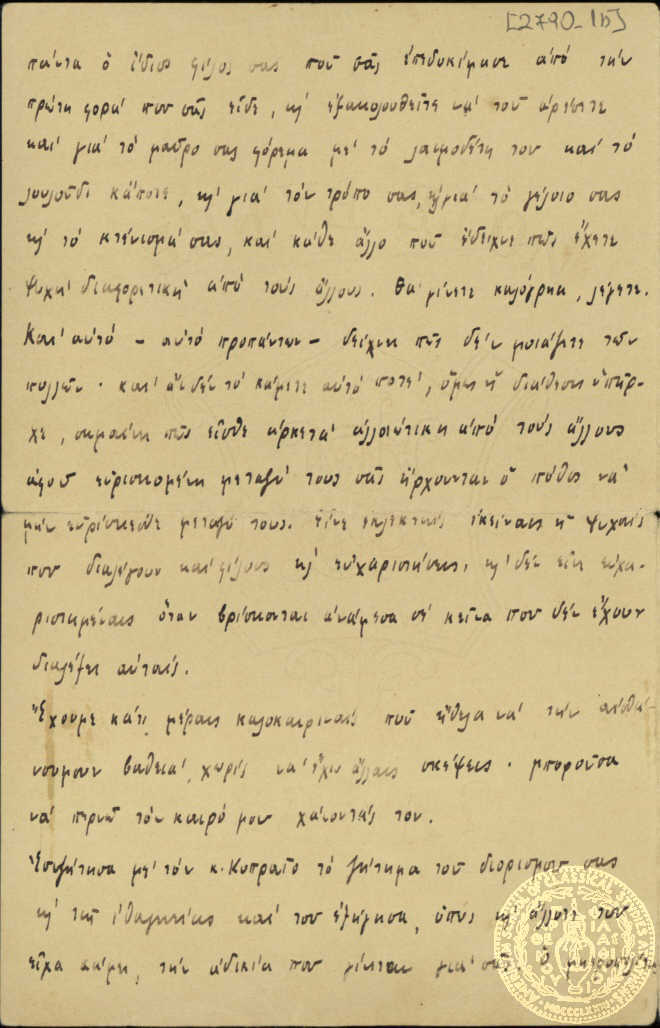 [2790-1b]
πάντα ὁ ἴδιος φίλος σας ποῦ σᾶς ἐπεδοκίμασε ἀπό τήν
πρώτη φορά που σᾶς εἶδε, κι' ἐξακολουθεῖτε νά τοῦ ἀρέσετε
καί γιά τό μαῦρο σας φόρεμα μέ τό λαιμοδέτη του καί τό
λουλοῦδι κάποτε, κι' γιά τόν τρόπο σας, κι' γιά τό γέλοιο σας
κι' τό κτένισμά σας, καί κάθε ἄλλο ποῦ ἔδειχνε πῶς ἔχετε
ψυχή διαφορετική ἀπό τούς ἄλλους. Θά γίνετε καλόγρηα, λέγετε.
Και αὐτό – αὐτό προπάντων – δείχνει πῶς δέν μοιάζετε τῶν
πολλῶν. καί ἄν δέν τό κάμετε αὐτό ποτέ, ὅμως ἡ διάθεσις ὑπῆρ-
χε, σημαίνει πῶς εἶσθε ἀρκετά ἀλλοιώτικη ἀπό τούς ἄλλους
ἀφοῦ εὑρισκομένη μεταξύ τους σᾶς ἤρχουνταν ὁ πόθος νά
μήν εὑρίσκεσθε μεταξύ τους. Εἶνε ἐκλεκταίς ἐκείναις ἡ ψυχαίς
που διαλέγουν καί φίλους κι' εὐχαριστήσεις, κι' δέν εἶνε εὐχα-
ριστημέναις ὅταν βρίσκονται ἀνάμεσα σέ κεῖνα που δέν ἔχουν
διαλέξει αὐταίς.
Ἔχουμε κάτι μέραις καλοκαιριναίς ποῦ ἤθελα νά τήν αἰσθα-
νουμουν βαθειά, χωρίς νά ἔχω ἄλλαις σκέψεις. μποροῦσα
νά περνῶ τόν καιρό μου χάνοντάς τον.
Ἐσυζήτησα μέ τόν κ. Κυπραῖο τό ζήτημα τοῦ διορισμοῦ σας
κι' τῆς ἰθαγενείας καί του ἐξήγησα, ὅπως κι' ἄλλοτε του
εἶχα κάμει, τήν ἀδικία που γίνεται γιά σᾶς. Ὁ